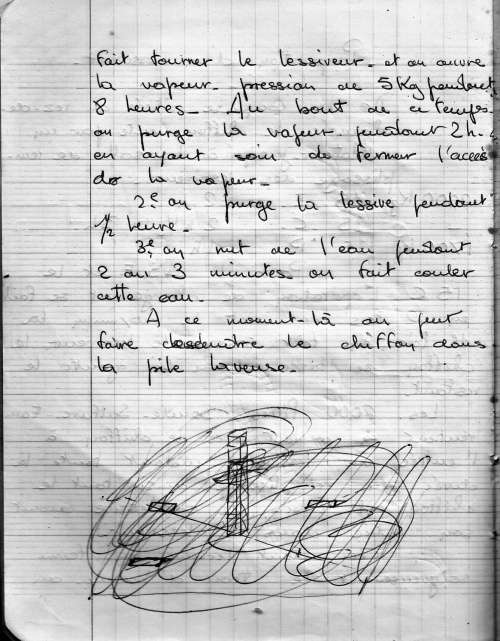 fait tourner le lessiveur. et on ouvre
la vapeur. pression de 5Kg pendant
8 heures. Au bout de ce temps
on purge la vapeur pendant 2h.
en ayant soin de fermer l'accès
de la vapeur.
2º on purge la lessive pendant
1/2 heure.
3º on met de l'eau pendant
2 ou 3 minutes. on fait couler
cette eau.
A ce moment-là on peut
faire descendre le chiffon dans
la pile laveuse.